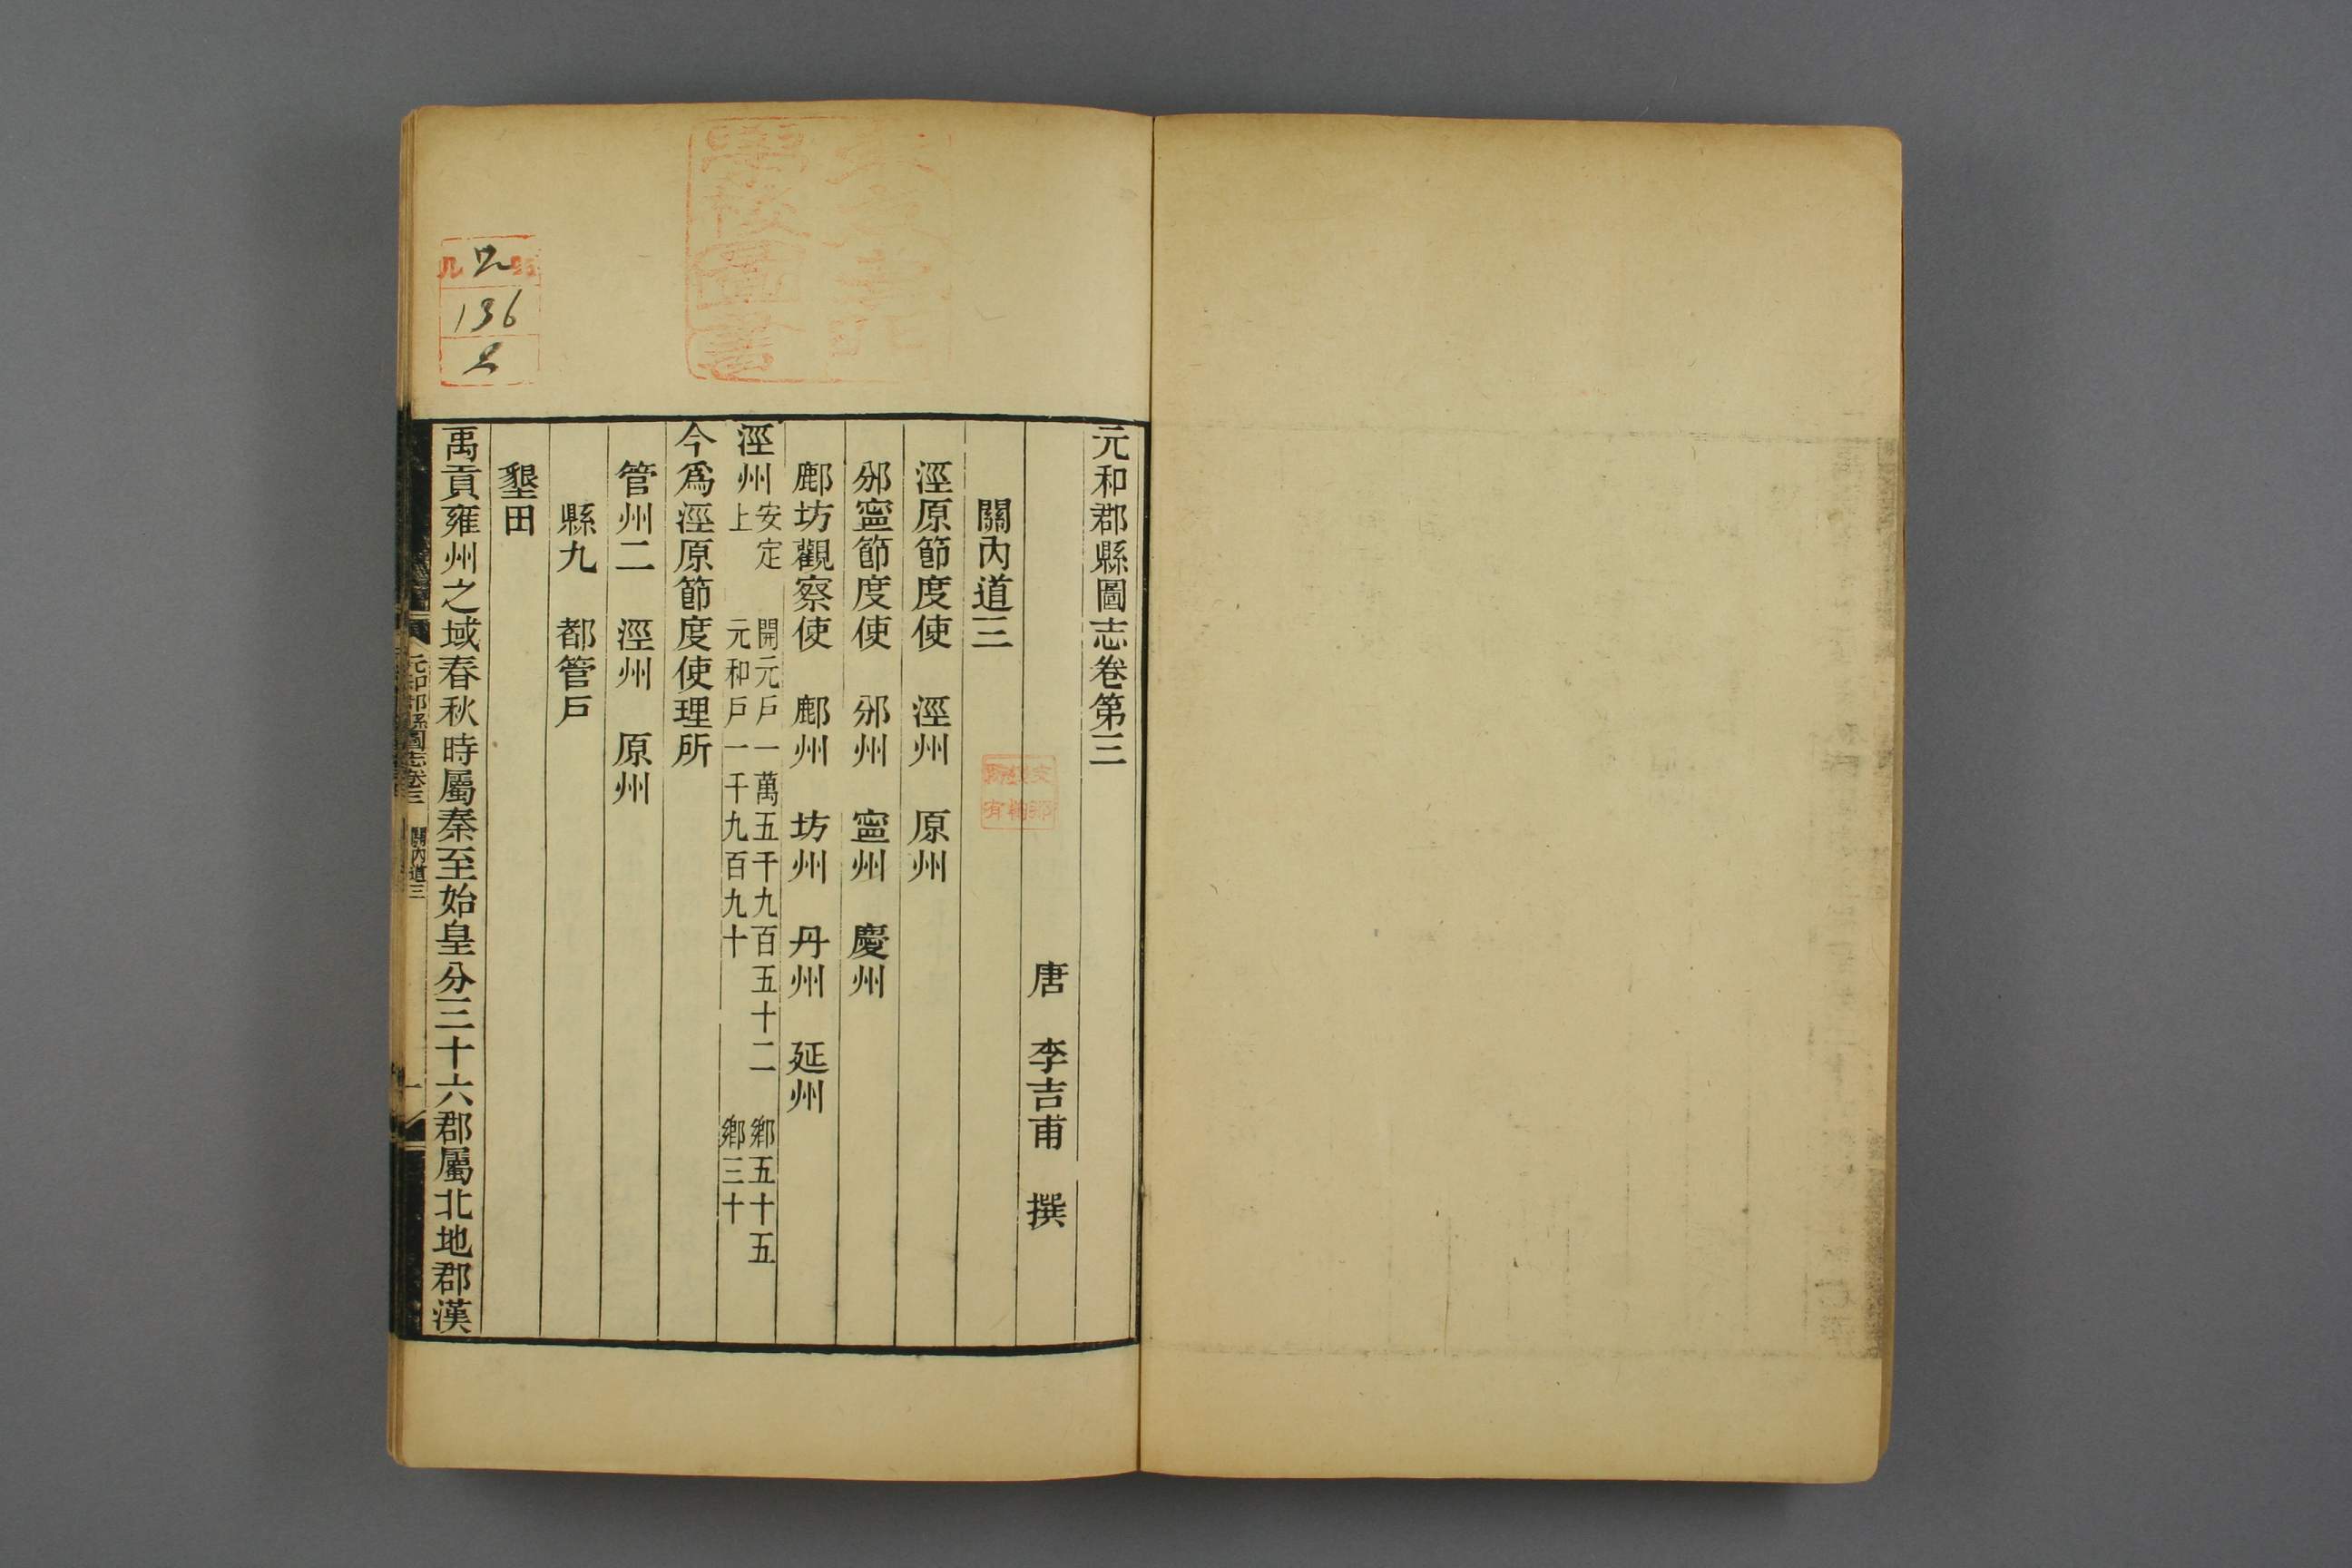 元和郡縣圖志卷第三
唐 李吉甫 撰
關內道三
涇原節度使 涇州 原州
邠寧節度使 邠州 寧州 慶州
鄜坊觀察使 鄜州 坊州 丹州 延州
涇州安定上 開元戶一萬五千九百五十二 鄉五十五
元和戶一千九百九十 鄉三十
今爲涇原節度使理所
管州二 涇州 原州
縣九 都管戶
墾田
禹貢雍州之域春秋時屬秦至始皇分三十六郡屬北地郡漢
元和郡縣圖志卷三 關內道三 一
136
2